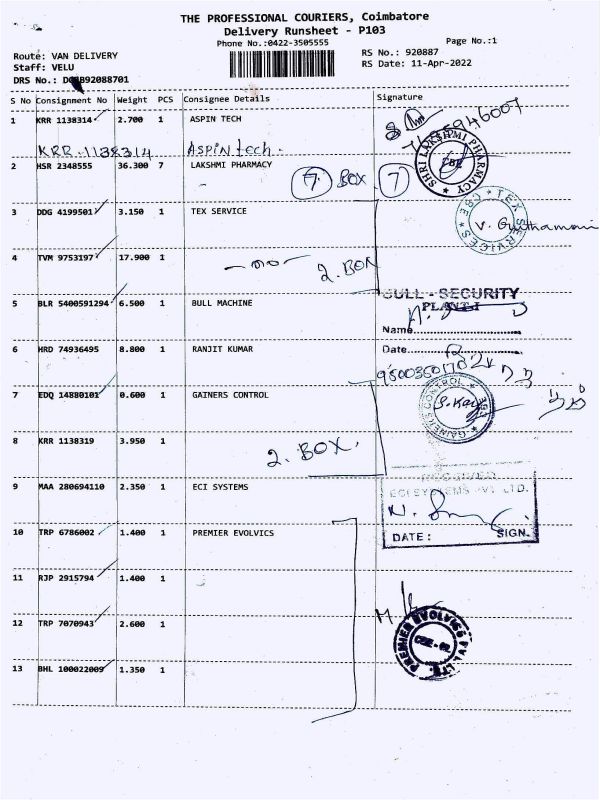 THE PROFESSIONAL COURIERS, Coimbatore
Delivery Runsheet - P103
Phone No.:0422-3505555
Page No.:1
Route: VAN DELIVERY
RS No.: 920887
Staff: VELU
RS Date: 11-Apr-2022
DRS No.:
S No Consignment No Weight PCS Consignee Details Signature
1 KRR 1138314 2.700 1 ASPIN TECH
KRR 1138314 ASPIN tech.
2 HSR 2348555 36.300 7 LAKSHMI PHARMACY
7 BOX. 7
SHRI LAKSHMI PHARMACY CBE
3 DDG 4199501 3.150 1 TEX SERVICE
TEX SERVICES CBE
4 TVM 9753197 17.900 1
2. BOX
5 BLR 5400591294 6.500 1 BULL MACHINE
BULL - SECURITY
PLANT-I
Name
6 HRD 74936495 8.800 1 RANJIT KUMAR
Date
7 EDQ 14880101 0.600 1 GAINERS CONTROL
GAINERS CONTROL CBE
8 KRR 1138319 3.950 1
2. BOX.
9 MAA 280694110 2.350 1 ECI SYSTEMS
RECEIVED
ECI SYSTEMS PVT LTD.
DATE: SIGN.
10 TRP 6786002 1.400 1 PREMIER EVOLVICS
11 RJP 2915794 1.400 1
12 TRP 7070943 2.600 1
PREMIER EVOLVICS PVT. LTD.
13 BHL 100022009 1.350 1